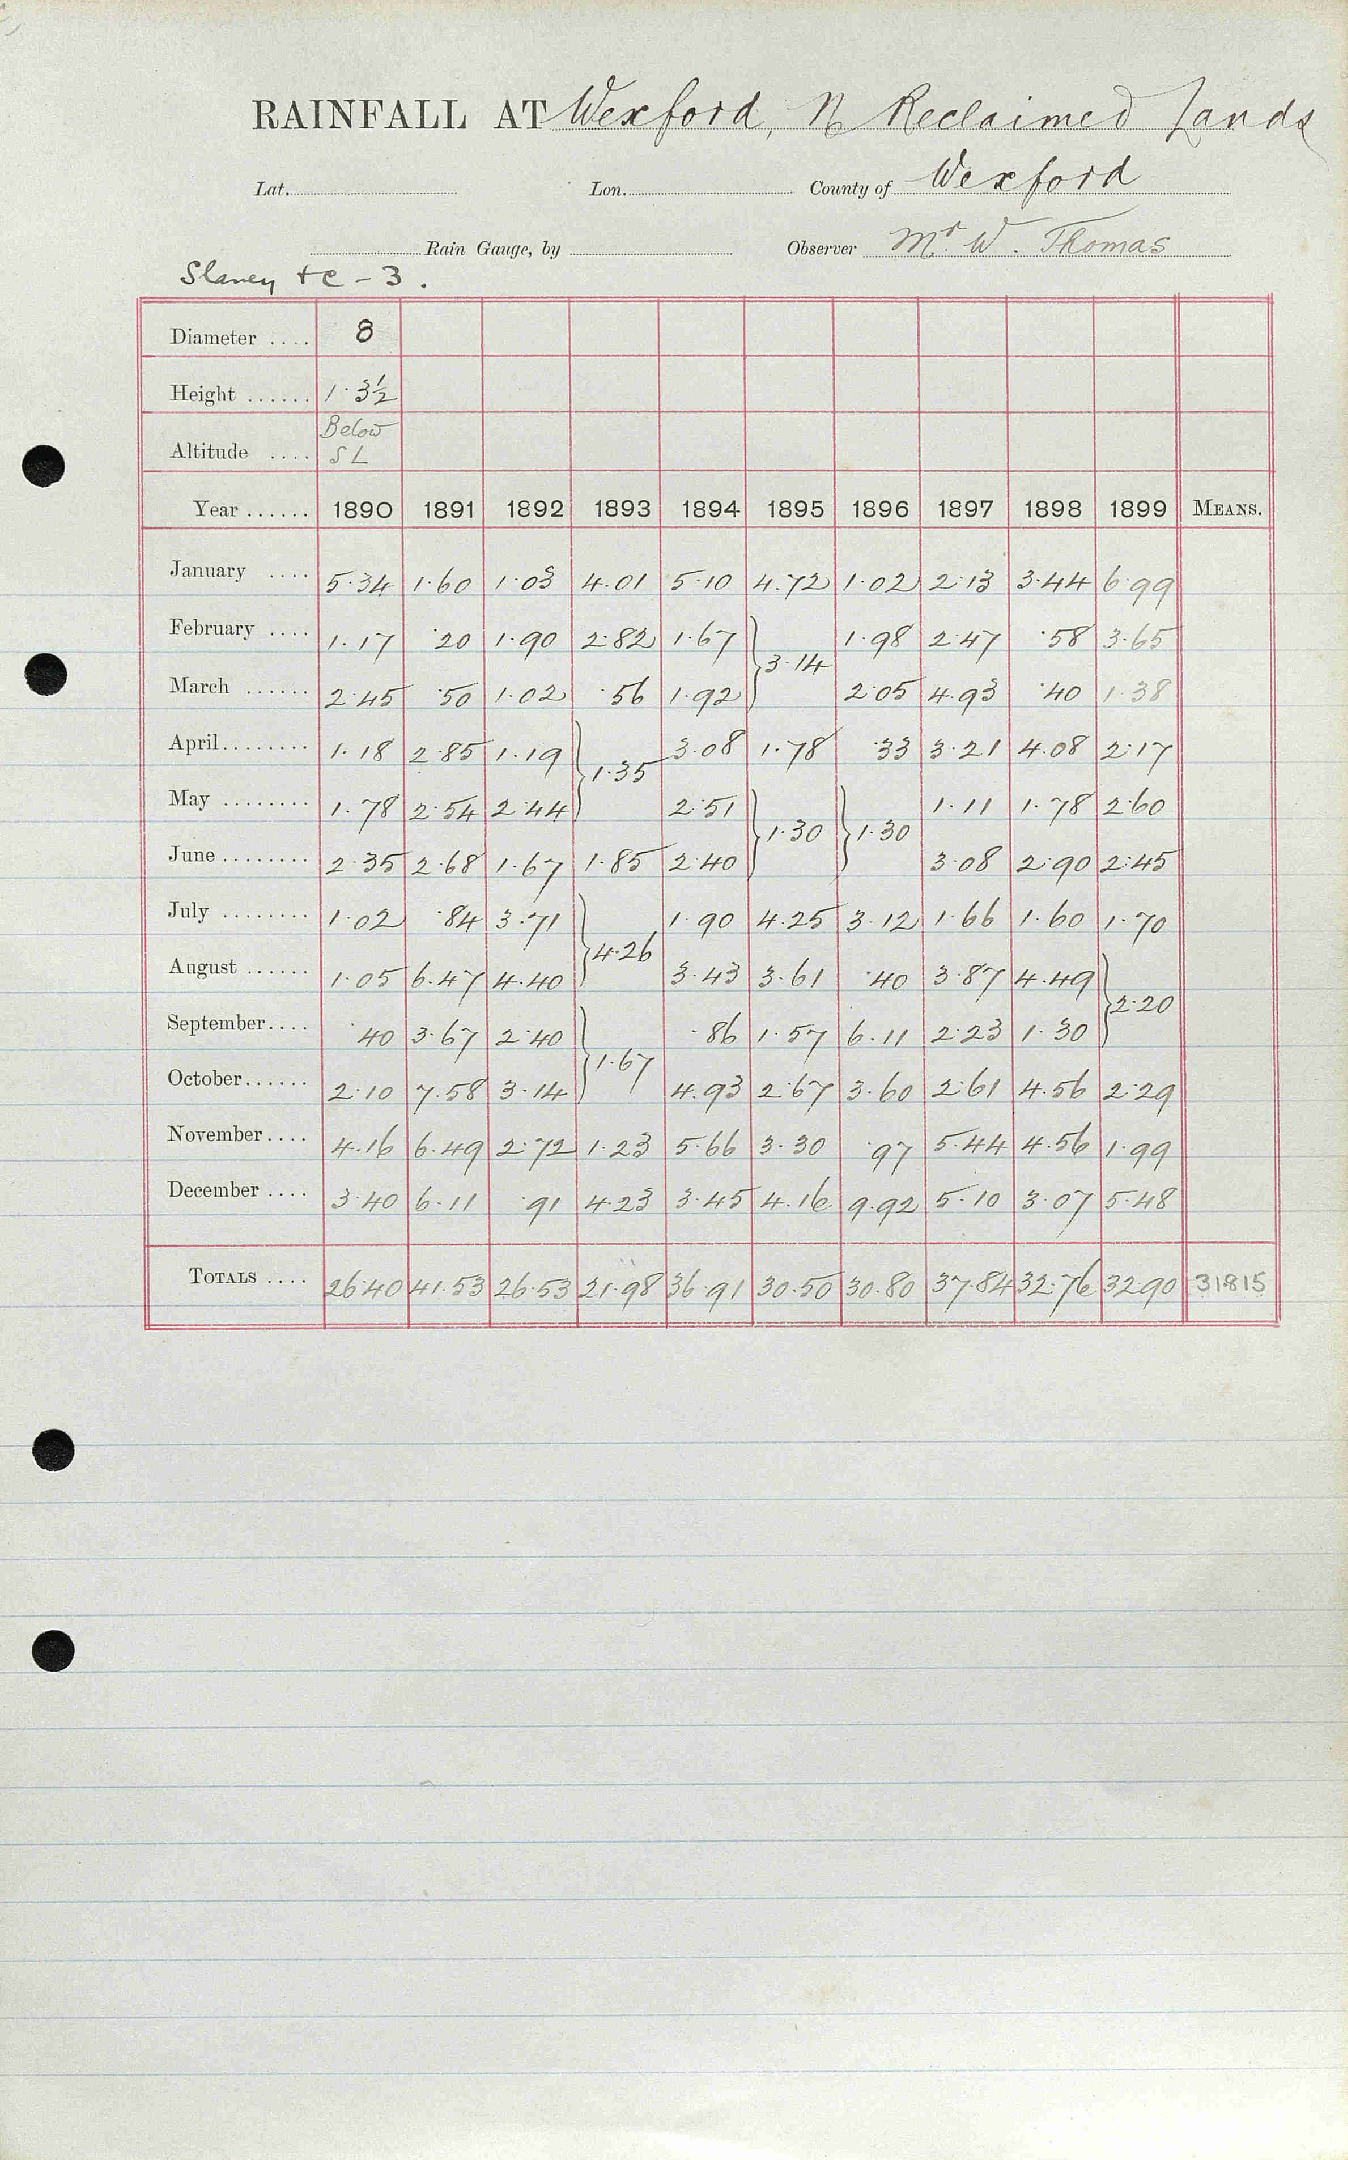 RAINFALL AT Wexford, N Reclaimed Lands
Lat. Lon. County of Wexford
Rain Gauge, by Observer Mr W. Thomas
Slaney &c - 3.
Diameter .... 8
Height ...... 1·3½
Altitude .... Below SL
Year ...... 1890 1891 1892 1893 1894 1895 1896 1897 1898 1899 MEANS.
January .... 5·34 1·60 1·03 4·01 5·10 4·72 1·02 2·13 3·44 6·99
February .... 1·17 ·20 1·90 2·82 1·67 } 1·98 2·47 ·58 3·65
3·14
March ...... 2·45 ·50 1·02 ·56 1·92 2·05 4·93 ·40 1·38
April........ 1·18 2·85 1·19 } 3·08 1·78 ·33 3·21 4·08 2·17
1·35
May ........ 1·78 2·54 2·44 2·51 } } 1·11 1·78 2·60
1·30 1·30
June ........ 2·35 2·68 1·67 1·85 2·40 3·08 2·90 2·45
July ........ 1·02 ·84 3·71 } 1·90 4·25 3·12 1·66 1·60 1·70
4·26
August ...... 1·05 6·47 4·40 3·43 3·61 ·40 3·87 4·49 }
2·20
September.... ·40 3·67 2·40 } ·86 1·57 6·11 2·23 1·30
1·67
October...... 2·10 7·58 3·14 4·93 2·67 3·60 2·61 4·56 2·29
November.... 4·16 6·49 2·72 1·23 5·66 3·30 ·97 5·44 4·56 1·99
December .... 3·40 6·11 ·91 4·23 3·45 4·16 9·92 5·10 3·07 5·48
TOTALS .... 26·40 41·53 26·53 21·98 36·91 30·50 30·80 37·84 32·76 32·90 31815